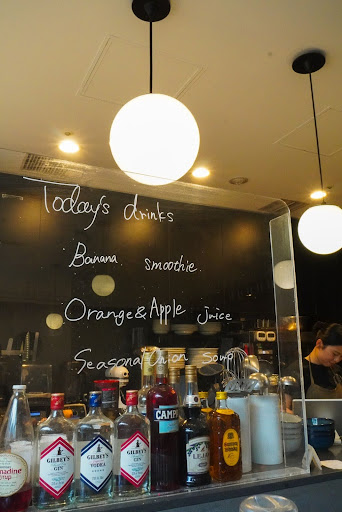 Today's drinks
Banana smoothie.
Orange&Apple juice
Seasonal Onion soup
GILBEY'S
GIN
GILBEY'S
VODKA
GILBEY'S
GIN
CAMPARI